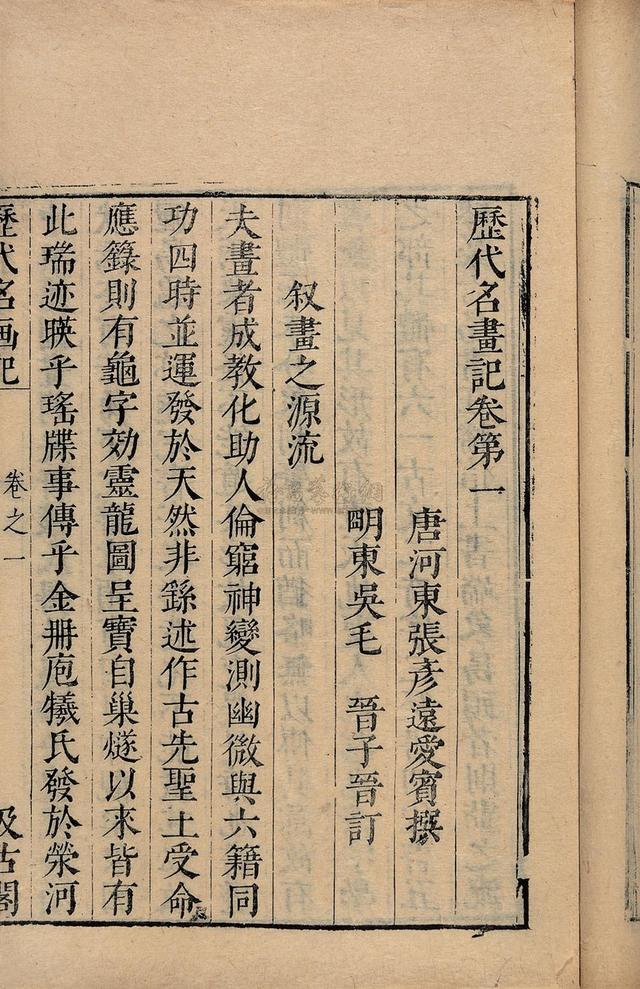 歷代名畫記卷第一
唐河東張彥遠愛賓撰
明東吳毛 晉子晉訂
叙畫之源流
夫畫者成教化助人倫窮神變測幽微與六籍同
功四時並運發於天然非繇述作古先聖王受命
應籙則有龜字効靈龍圖呈寶自巢燧以來皆有
此瑞迹暎乎瑤牒事傳乎金册庖犧氏發於滎河
歷代名画記 卷之一 汲古閣